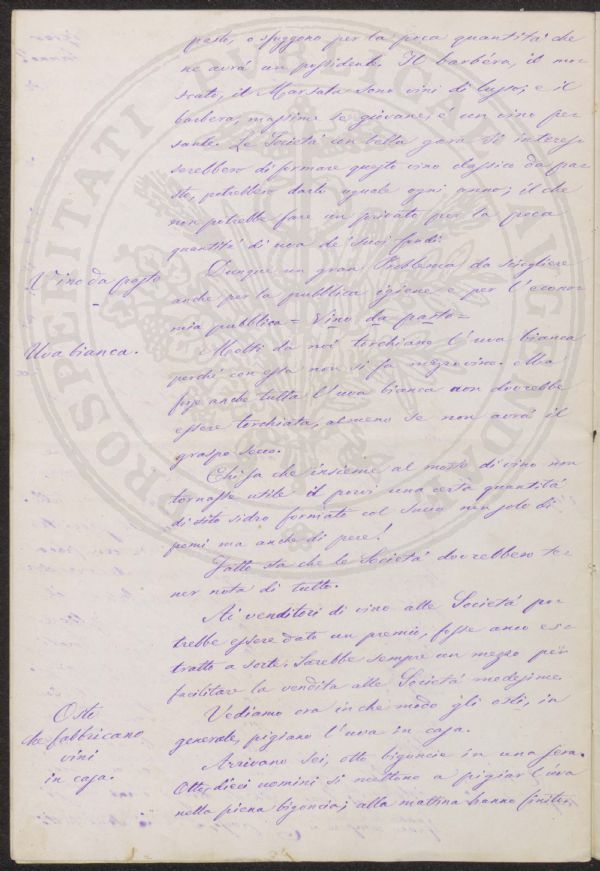 pasto, o sfuggono per la poca quantitá che
ne avrá un possidente. Il barbéra, il mo-
scato, il Marsala sono vini di lusso; e il
barbera, massime se giovane, é un vino pe-
sante. Le Societá con bella gara si interes-
serebbero di formare questo vino classico da pa-
sto, potrebbero darlo uguale ogni anno; il che
non potrebbe fare un privato per la poca
quantitá di uva de' suoi fondi.
Vino da pasto
Dunque un gran Problema da sciogliere
anche per la pubblica igiene e per l'econo-
mia pubblica = Vino da pasto =
Uva bianca.
Molti da noi torchiano l'uva bianca
perché con essa non si fa mezzovino. Ma
forse anche tutta l'uva bianca non dovrebbe
essere torchiata, almeno se non avrá il
graspo secco.
Chi sa che insieme al mosto di vino non
tornasse utile il porvi una certa quantitá
di sito sidro formato col succo non solo di
pomi ma anche di pere!
Fatto sta che le Societá dovrebbero te-
ner nota di tutto.
Ai venditori di vino alle Societá po-
trebbe essere dato un premio, fosse anco es-
tratto a sorte. Sarebbe sempre un mezzo per
facilitare la vendita alle Societá medesime.
Osti
che fabbricano
vini
in casa.
Vediamo ora in che modo gli osti, in
generale, pigiano l'uva in casa.
Arrivano sei, otto bigoncie in una sera.
Otto, dieci uomini si mettono a pigiar l'uva
nella piena bigoncia; alla mattina hanno finito;
PROSPERITATI PUBLICAE AUGENDAE